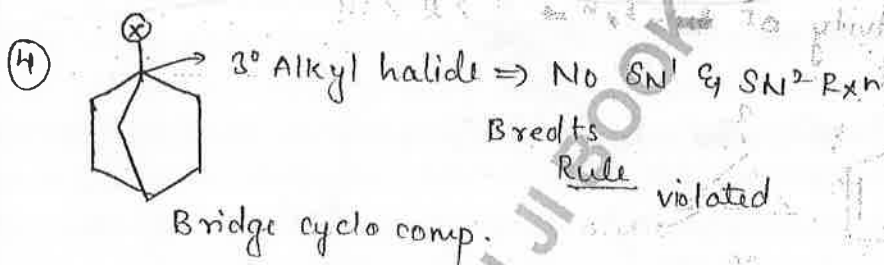 ④ Ⓧ
3° Alkyl halide ⇒ No SN¹ & SN² Rxn
Bredts
Rule violated
Bridge cyclo comp.
JI BOOK